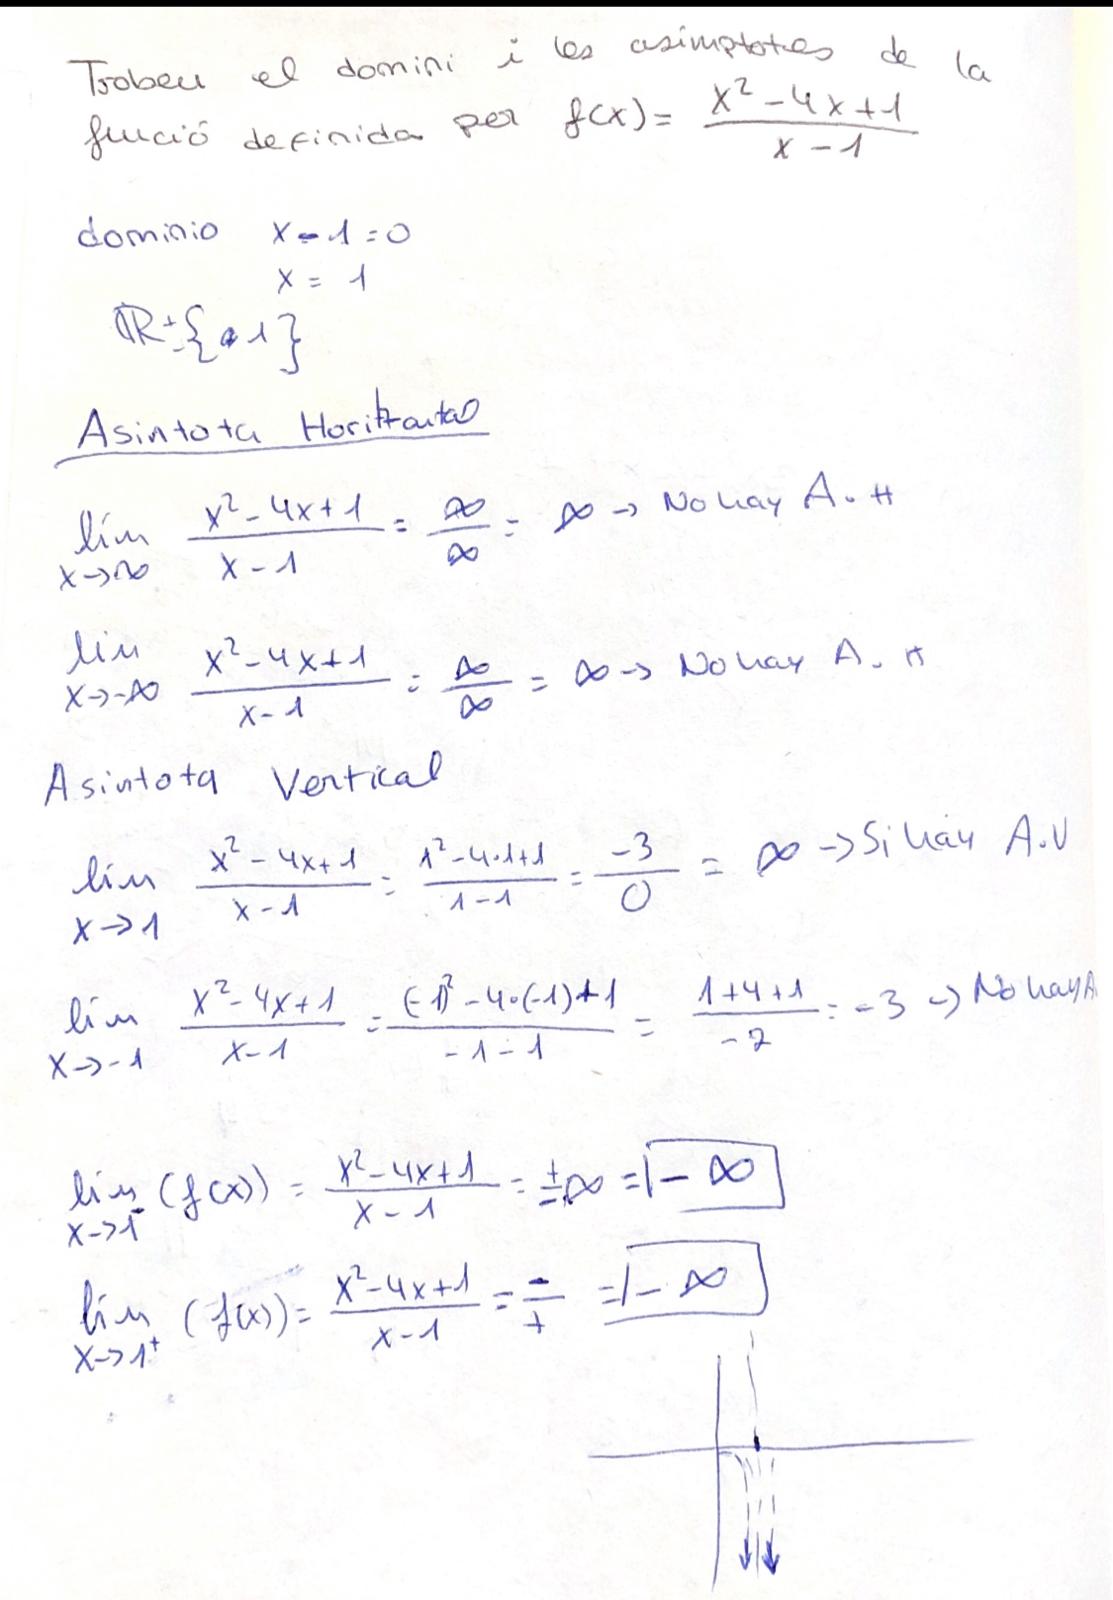 Trobeu el domini i les asímptotes de la
funció definida per f(x) = (x² - 4x + 1)/(x - 1)
dominio x - 1 = 0
x = 1
ℝ ± {1}
Asintota Horitzontal
lím x→∞ (x² - 4x + 1)/(x - 1) = ∞/∞ = ∞ → No hay A. H
lím x→-∞ (x² - 4x + 1)/(x - 1) = ∞/∞ = ∞ → No hay A. H
Asintota Vertical
lím x→1 (x² - 4x + 1)/(x - 1) = (1² - 4·1 + 1)/(1 - 1) = -3/0 = ∞ → Si hay A.V
lím x→-1 (x² - 4x + 1)/(x - 1) = ((-1)² - 4·(-1) + 1)/(-1 - 1) = (1 + 4 + 1)/-2 = -3 → No hay A
lím x→1⁻ (f(x)) = (x² - 4x + 1)/(x - 1) = ±∞ = | - ∞
lím x→1⁺ (f(x)) = (x² - 4x + 1)/(x - 1) = -/+ = | - ∞